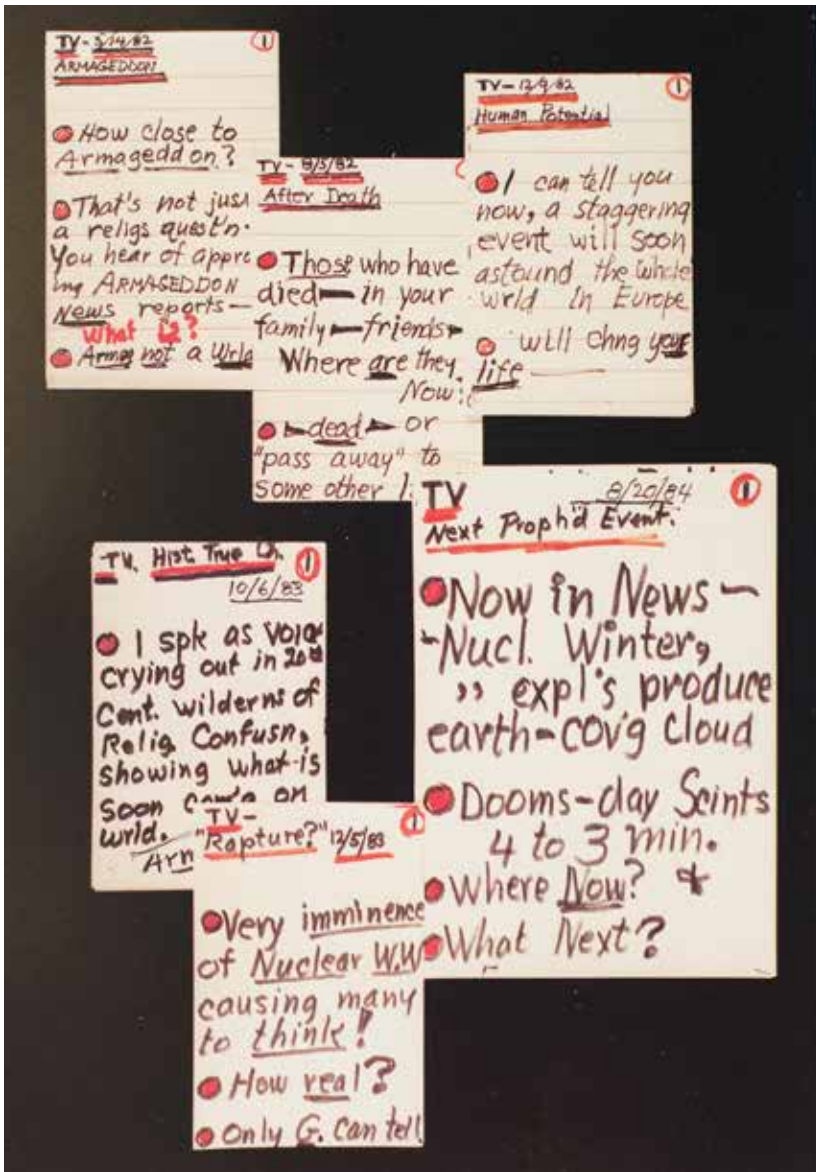 TV - 5/14/82 1
ARMAGEDDON
How close to
Armageddon?
That's not jus
a religs quest'n.
You hear of appro
ing ARMAGEDDON
News reports —
What is?
Armag not a Wrld
TV - 8/5/82
After Death
Those who have
died — in your
family — friends —
Where are they
Now
— dead — or
"pass away" to
some other
TV - 12/9/82 1
Human Potential
I can tell you
now, a staggering
event will soon
astound the whole
wrld in Europe
will chng your
life —
TV. Hist True Ch. 1
10/6/83
I spk as Voice
crying out in 20th
Cent. wilderns of
Relig Confusn,
showing what is
soon on
wrld.
Arm
TV -
"Rapture?" 12/5/83 1
Very imminence
of Nuclear W.W
causing many
to think!
How real?
Only G. can tell
TV 8/20/84 1
Next Proph'd Event.
Now in News —
- Nucl. Winter,
" expl's produce
earth-cov'g cloud
Dooms-day Scints
4 to 3 min.
Where Now? *
What Next?